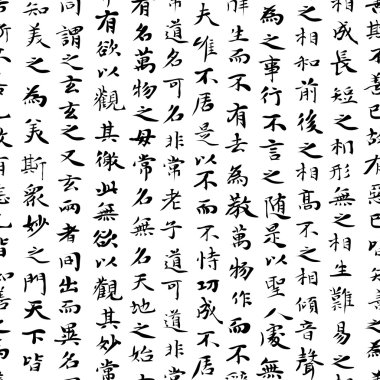 不善已故有惡已皆知善之為
相成長短之相形無之相生難易之
之相和前後之相高不之相傾音聲
為之事行不言之随是以聖人處無
辭生而不有去為敬萬物作而不辭
夫唯不居是以不而不恃功成不居
常道名可名非常老子道可道非常
有名萬物之母常名無名天地之始
有欲以觀其徼此無欲以觀其妙常
同謂之玄玄之又玄兩者同出而異名
知美之為美斯眾妙之門天下皆